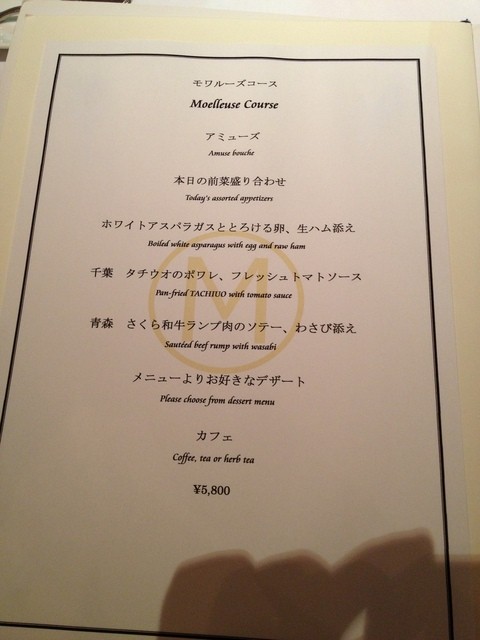 モワルーズコース
Moelleuse Course
アミューズ
Amuse bouche
本日の前菜盛り合わせ
Today's assorted appetizers
ホワイトアスパラガスととろける卵、生ハム添え
Boiled white asparagus with egg and raw ham
千葉 タチウオのポワレ、フレッシュトマトソース
Pan-fried TACHIUO with tomato sauce
M
青森 さくら和牛ランプ肉のソテー、わさび添え
Sautéed beef rump with wasabi
メニューよりお好きなデザート
Please choose from dessert menu
カフェ
Coffee, tea or herb tea
¥5,800